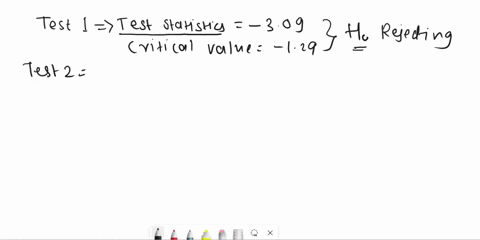 Test 1 => Test statistics = -3.09 } H₀ Rejecting
Critical value = -1.29
Test 2 =